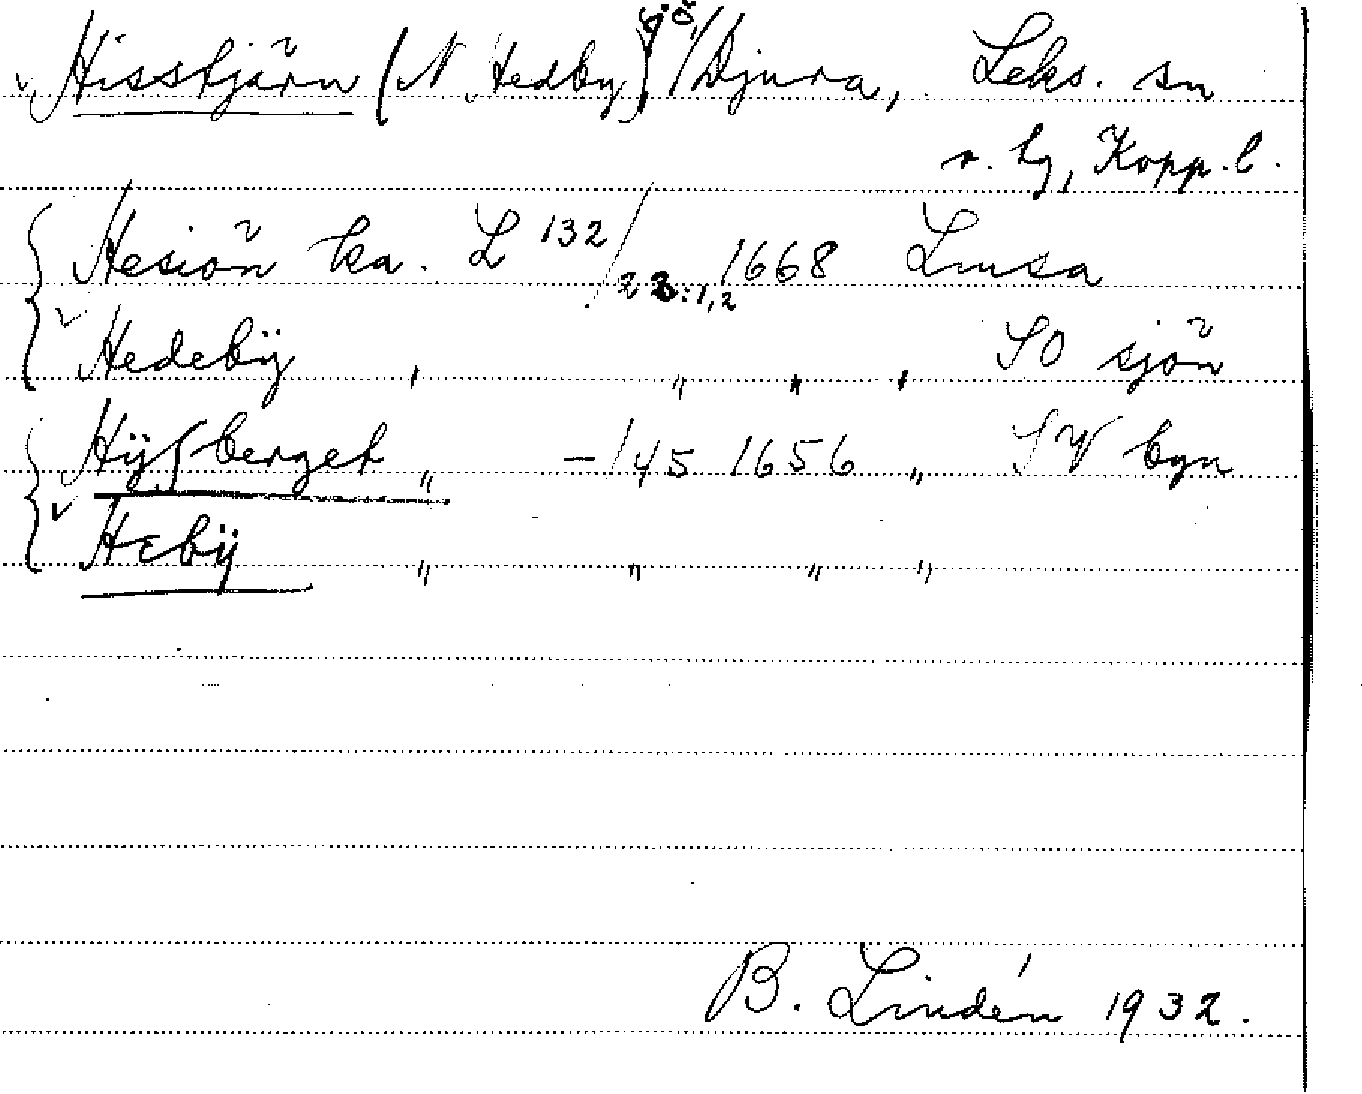 Hisstjärn (N. Hedby) sjö, Djura, Leks. sn
o. tg, Kopp. l.
Hesiön ka. L 132/23:1,2 1668 Lmsa
Hedebÿ " " " " SO sjön
Hÿsberget " -/45 1656 " SV byn
Hebÿ " " " "
B. Lindén 1932.